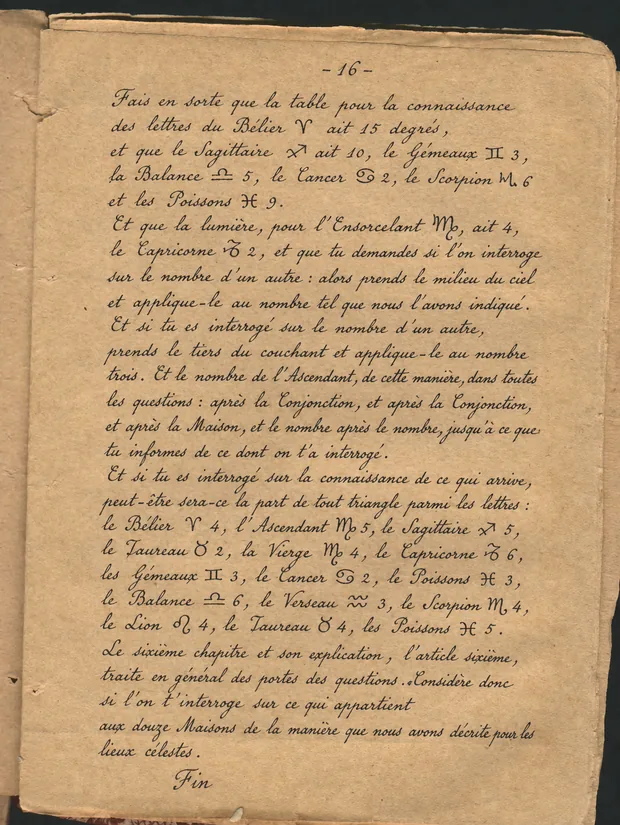 - 16 -
Fais en sorte que la table pour la connaissance
des lettres du Bélier ♈ ait 15 degrés,
et que le Sagittaire ♐ ait 10, le Gémeaux ♊ 3,
la Balance ♎ 5, le Cancer ♋ 2, le Scorpion ♏ 6
et les Poissons ♓ 9.
Et que la lumière, pour l'Ensorcelant ♍, ait 4,
le Capricorne ♑ 2, et que tu demandes si l'on interroge
sur le nombre d'un autre : alors prends le milieu du ciel
et applique-le au nombre tel que nous l'avons indiqué.
Et si tu es interrogé sur le nombre d'un autre,
prends le tiers du couchant et applique-le au nombre
trois. Et le nombre de l'Ascendant, de cette manière, dans toutes
les questions : après la Conjonction, et après la Conjonction,
et après la Maison, et le nombre après le nombre, jusqu'à ce que
tu informes de ce dont on t'a interrogé.
Et si tu es interrogé sur la connaissance de ce qui arrive,
peut-être sera-ce la part de tout triangle parmi les lettres :
le Bélier ♈ 4, l'Ascendant ♍ 5, le Sagittaire ♐ 5,
le Taureau ♉ 2, la Vierge ♍ 4, le Capricorne ♑ 6,
les Gémeaux ♊ 3, le Cancer ♋ 2, le Poissons ♓ 3,
le Balance ♎ 6, le Verseau ♒ 3, le Scorpion ♏ 4,
le Lion ♌ 4, le Taureau ♉ 4, les Poissons ♓ 5.
Le sixième chapitre et son explication, l'article sixième,
traite en général des portes des questions. Considère donc
si l'on t'interroge sur ce qui appartient
aux douze Maisons de la manière que nous avons décrite pour les
lieux célestes.
Fin